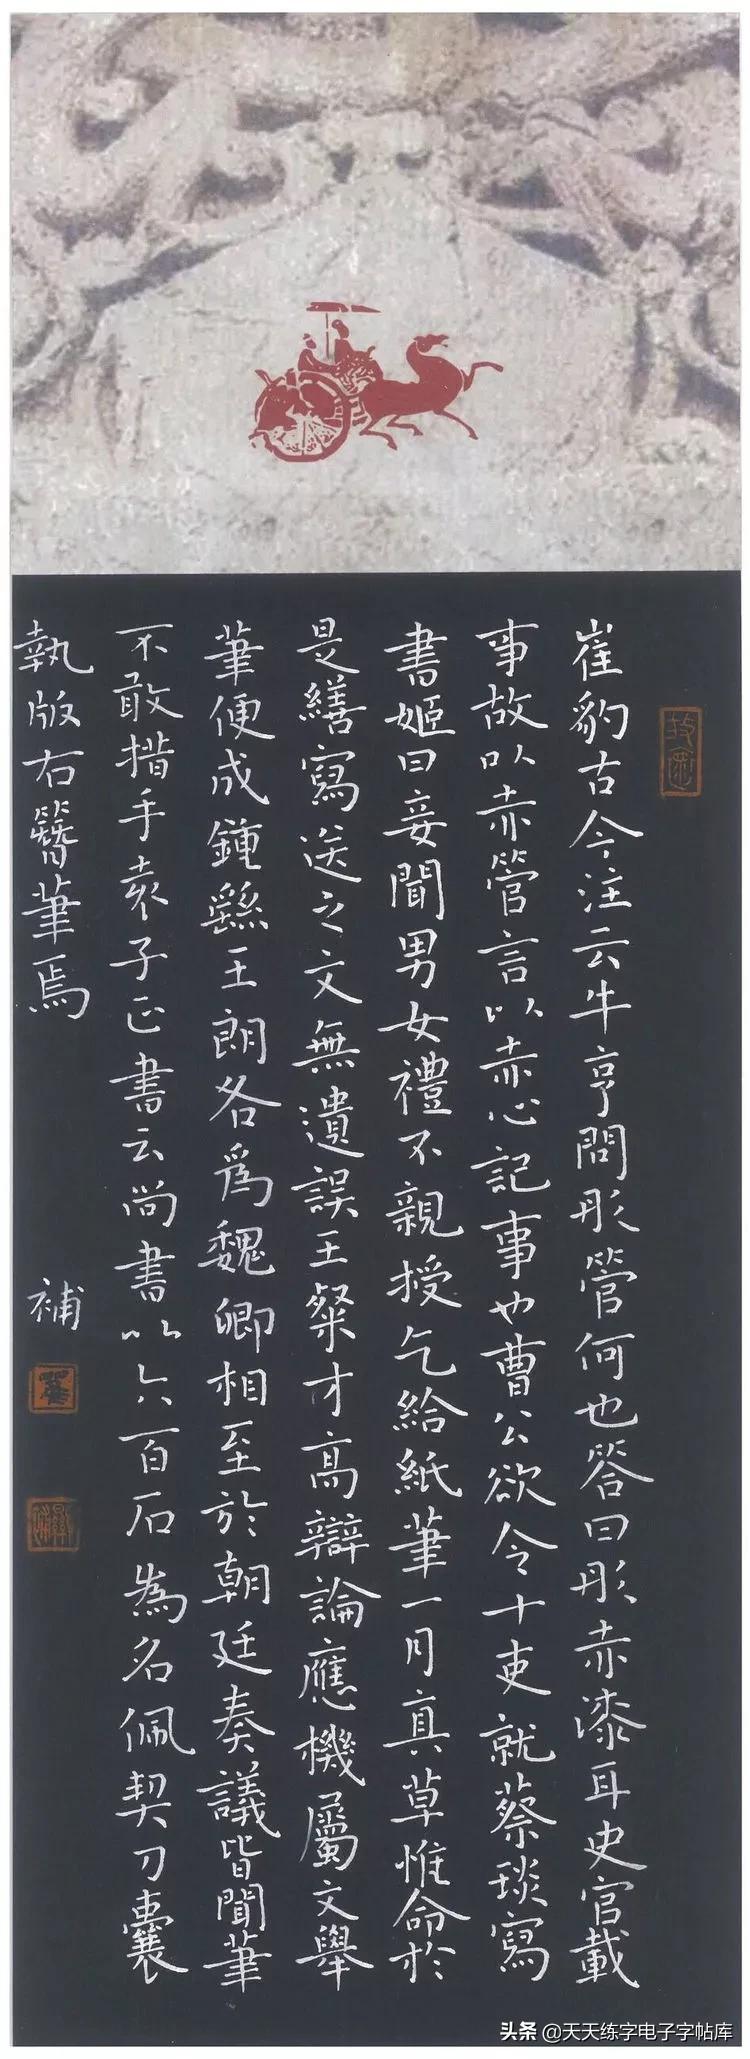 崔豹古今注云牛亨問彤管何也答曰彤赤漆耳史官載
事故以赤管言以赤心記事也曹公欲令十吏就蔡琰寫
書姬曰妾聞男女禮不親授乞給紙筆一月真草惟命於
是繕寫送之文無遺誤王粲才高辯論應機屬文舉
筆便成鍾繇王朗各爲魏卿相至於朝廷奏議皆聞筆
不敢措手袁子正書云尚書以六百石為名佩契刀囊
執版右簪筆焉
補
头条 @天天练字电子字帖库